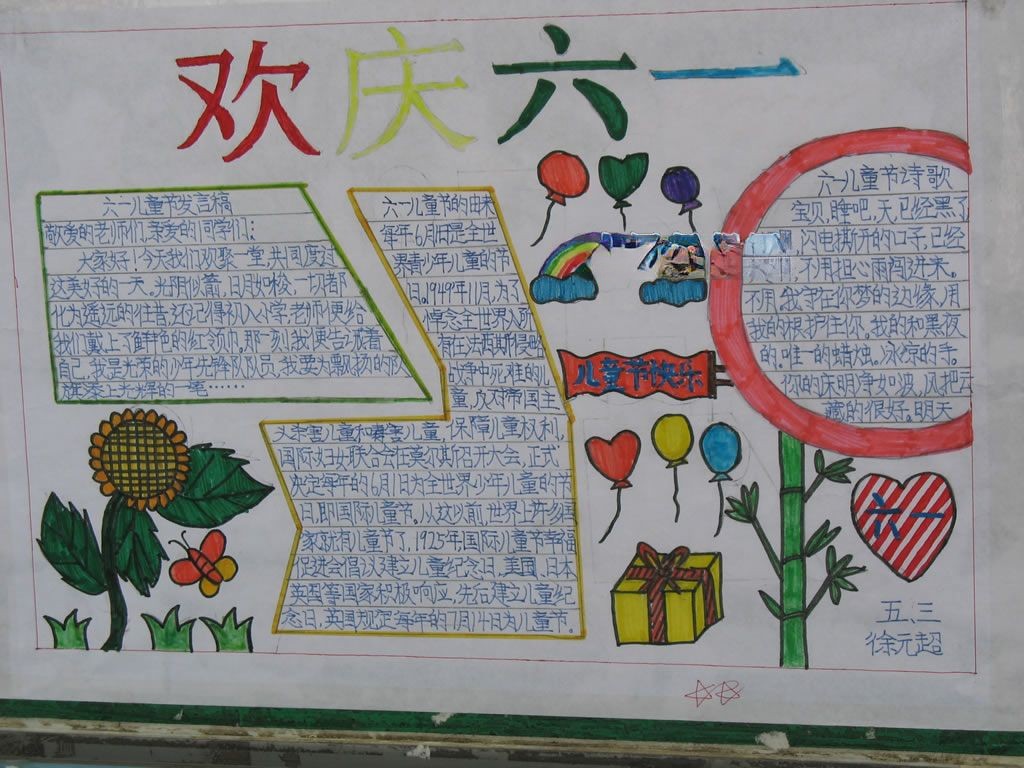 欢庆六一
六一儿童节发言稿
敬爱的老师们,亲爱的同学们:
大家好!今天我们欢聚一堂,共同度过
这美好的一天。光阴似箭,日月如梭,一切都
化为遥远的往昔,还记得初入小学,老师便给
我们戴上了鲜艳的红领巾。那一刻,我便告诉着
自己,我是光荣的少年先锋队队员,我要为飘扬的队
旗添上光辉的一笔……
六一儿童节的由来
每年6月1日是全世
界青少年儿童的节
日。1949年11月,为了
悼念全世界人所
有在法西斯侵略
战争中死难的儿
童,反对帝国主
义杀害儿童和毒害儿童,保障儿童权利,
国际妇女联合会在莫尔斯召开大会,正式
决定每年的6月1日为全世界少年儿童的节
日,即国际儿童节。从这以前,世界上许多国
家就有儿童节了,1925年,国际儿童节幸福
促进会倡议建立儿童纪念日,美国、日本
英国等国家积极响应,先后建立儿童纪
念日,英国规定每年的7月14日为儿童节。
儿童节快乐
六一儿童节诗歌
宝贝,睡吧,天,已经黑了
闪电撕开的口子,已经
不用担心雨闯进来。
不用。我守在你梦的边缘,用
我的根护住你。我的和黑夜
的,唯一的蜡烛。冰凉的手。
你的床明净如波,风把云
藏的很好。明天
六一
五、三
徐元超